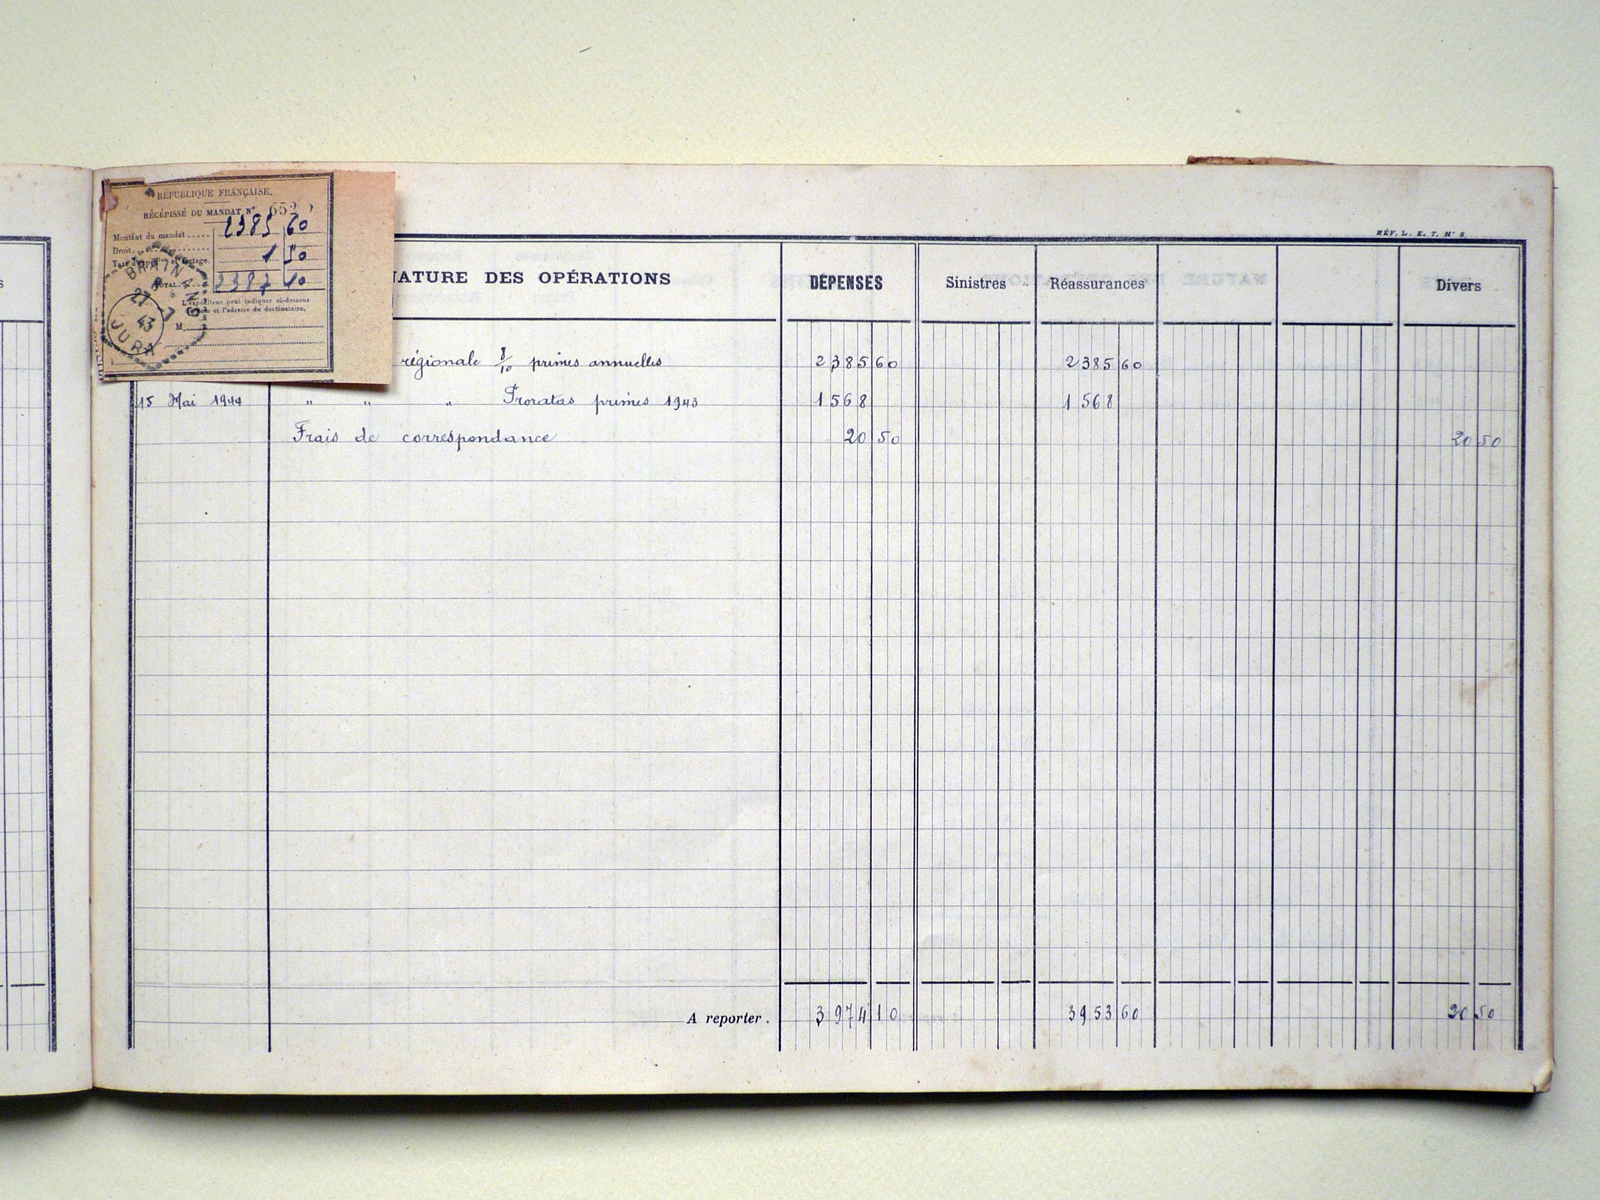 RÉPUBLIQUE FRANÇAISE.
RÉCÉPISSÉ DU MANDAT N° 652
Montant du mandat ..... 2385 60
Droit 1 50
TOTAL 2387 10
L'expéditeur peut indiquer ci-dessous
et l'adresse du destinataire.
M.
BRAINANS
27
7
43
JURA
RÉF. L. E. T. N° 8.
NATURE DES OPÉRATIONS DÉPENSES Sinistres Réassurances Divers
régionale 8/10 primes annuelles 2385 60 2385 60
15 Mai 1944 " " " Proratas primes 1943 1568 1568
Frais de correspondance 20 50 20 50
A reporter. 3974 10 3953 60 20 50